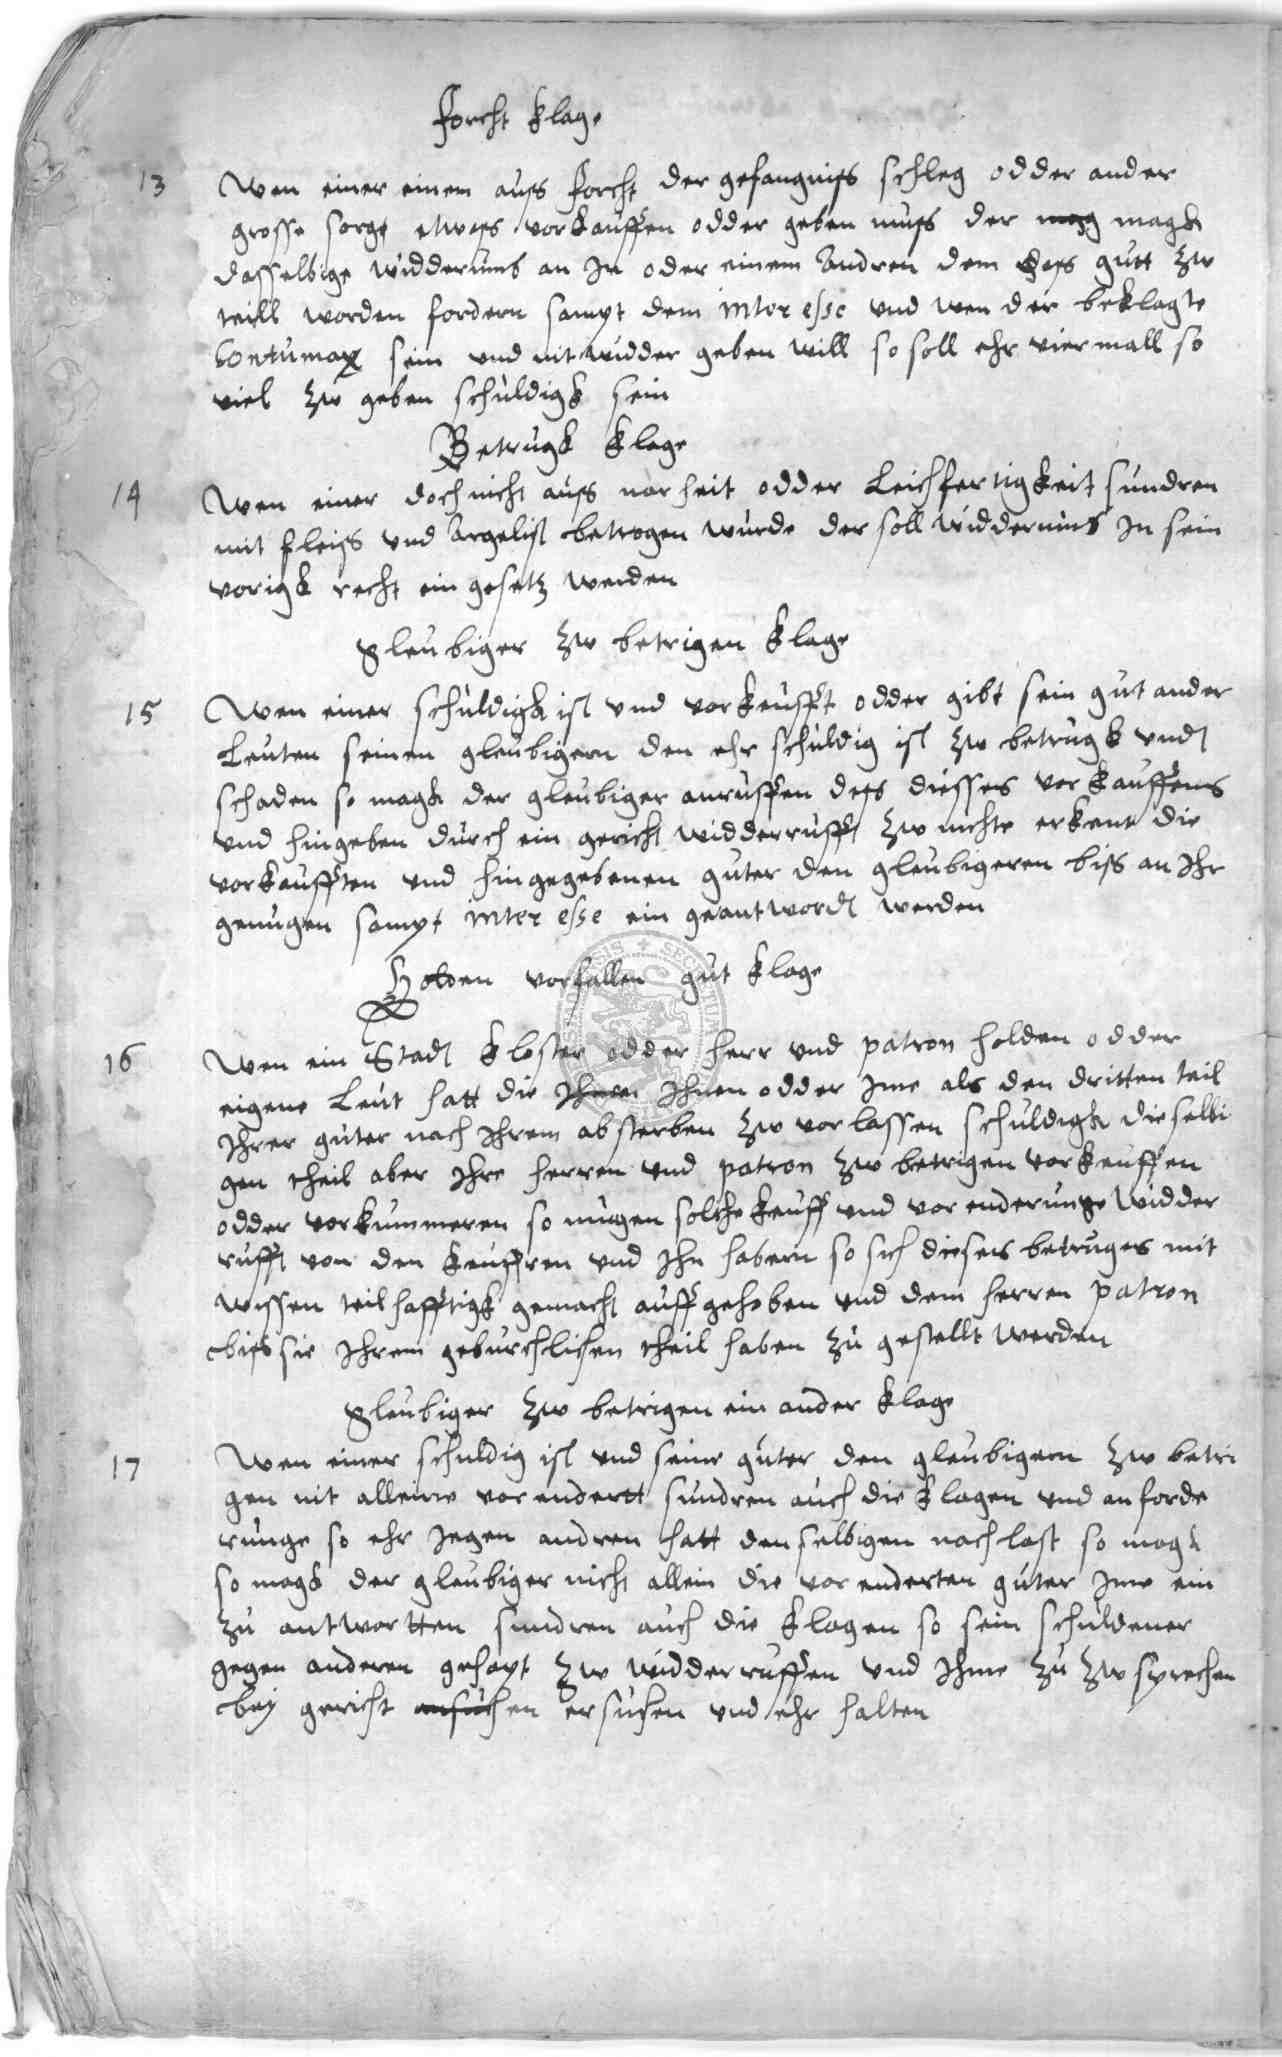 Forcht klage
13 Wen einer einem auss Forcht der gefangniss schleg odder ander
grosse sorge etwass vorkauffen odder geben muss der mag magk
dasselbige widderumb an In oder einem Andren dem dass gutt zw
teill worden fordern sampt dem interesse vnd wen der beklagte
Contumax sein vnd nit widder geben will so soll ehr vier mall so
viel zw geben schuldigk sein
Betrugk klage
14 Wen einer doch nicht auss narheit odder Leichfertigkeit sundren
mit fleiss vnd Argelist betrogen wurde der soll widderumb In sein
vorigk recht ein gesetz werden
gleubiger zw betrigen klage
15 Wen einer schuldigk ist vnd vorkeufft odder gibt sein gut ander
Leuten seinen gleubigern den ehr schuldig ist zw betrugk vnd
schaden so magk der gleubiger anruffen dess diesses vorkauffens
vnd hingeben durch ein gericht widderrufft zw nichte erkent die
vorkaufften vnd hingegebenen guter den gleubigeren biss an Ihr
genugen sampt interesse ein geantword werden
Holden vorfallen gut klage
16 Wen ein Stadt kloster odder herr vnd patron holden odder
eigene Leut hatt die Ihnen Ihnen odder Ime als den dritten teil
Ihrer guter nach Ihrem absterben zw vorlassen schuldigk die selbi
gen theil aber Ihre herren vnd patron zw betrigen vorkeuffen
odder vorkummeren so mugen solche keuff vnd vorenderunge widder
rufft von den keuffren vnd Ihn habern so sich dieses betruges mit
wissen teilhafftigk gemacht auffgehoben vnd dem herren patron
biss sie Ihrem geburchlichen theil haben zu gestellt werden
gleubiger zw betrigen ein ander klage
17 Wen einer schuldig ist vnd seine guter den gleubigern zw betri
gen nit alleine vorendertt sundren auch die klagen vnd anforde
runge so ehr Jegen andren hatt denselbigen nach last so magk
so magk der gleubiger nicht allein die vorenderten guter Ime ein
zu antwortten sundren auch die klagen so sein schuldener
gegen anderen gehapt zw widderruffen vnd Ihme zu zw sprechen
bey gericht ansuchen ersuchen vnd ehr halten